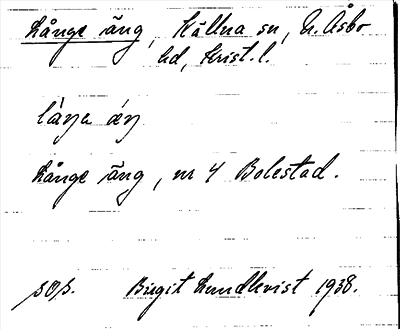 Långe äng, Källna sn, N. Åsbo
hd, Krist. l.
Långe äng, nr 4 Bolestad.
sOs. Birgit Lundkvist 1938.